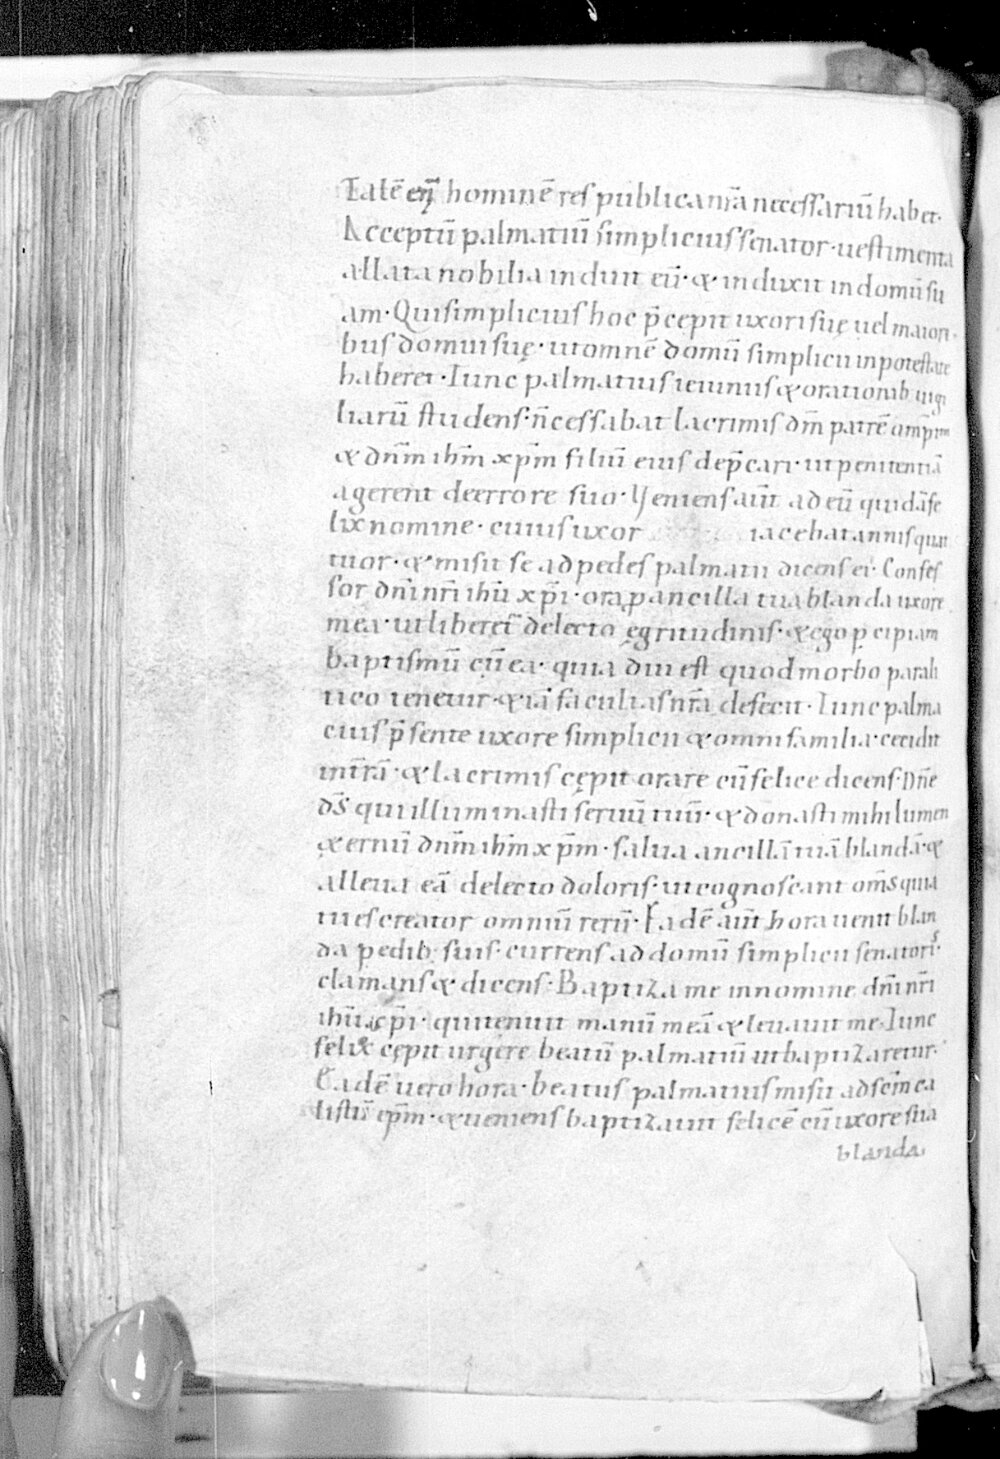 Talē eni̅ hominē res publica nr̄a necessariū habet·
Acceptū palmatiū simplicius senator· uestimenta
allata nobilia induit eū· & induxit in domū su
am· Qui simplicius hoc p̄cepit uxori suę uel maiori
bus domui suę· ut omnē domū simplicii in potestate
haberet· Tunc palmatius ieiuniis & orationib uigi
liarū studens· n̄ cessabat lacrimis dn̄m patrē
& dn̄m ihm̄ xp̄m filiū eius dep̄cari· ut penitentiā
agerent de errore suo· Veniens aūt ad eū quidā fe
lix nomine· cuius uxor iacebat annis quat
tuor· & misit se ad pedes palmatii dicens ei· Confes
sor dn̄i nr̄i ihū xp̄i· ora p ancilla tua blanda uxore
mea· ut liberet̄ de lecto ęgritudinis· & ego p̄cipiam
baptismū cū ea· quia diu est quod morbo parali
tico tenetur· & iā facultas nr̄a defecit· Tunc palma
cius p̄sente uxore simplicii & omni familia· cecidit
in tr̄ā· & lacrimis cępit orare cū felice dicens· Dn̄e
ds̄ qui illuminasti seruū tuū· & donasti mihi lumen
ęternū dn̄m ihm̄ xp̄m· salua ancillā tuā blandā· &
alleua eā de lecto doloris· ut cognoscant om̄s quia
tu es creator omniū rerū· Eadē aūt hora uenit blan
da pedib; suis· currens ad domū simplicii senatoris·
clamans & dicens· Baptiza me in nomine dn̄i nr̄i
ihū xp̄i· qui tenuit manū meā & leuauit me· Tunc
felix cępit urgere beatū palmatiū ut baptizaretur·
Eadē uero hora· beatus palmatius misit ad sc̄m ca
listū ep̄m· & ueniens baptizauit felicē cū uxore sua
blanda·